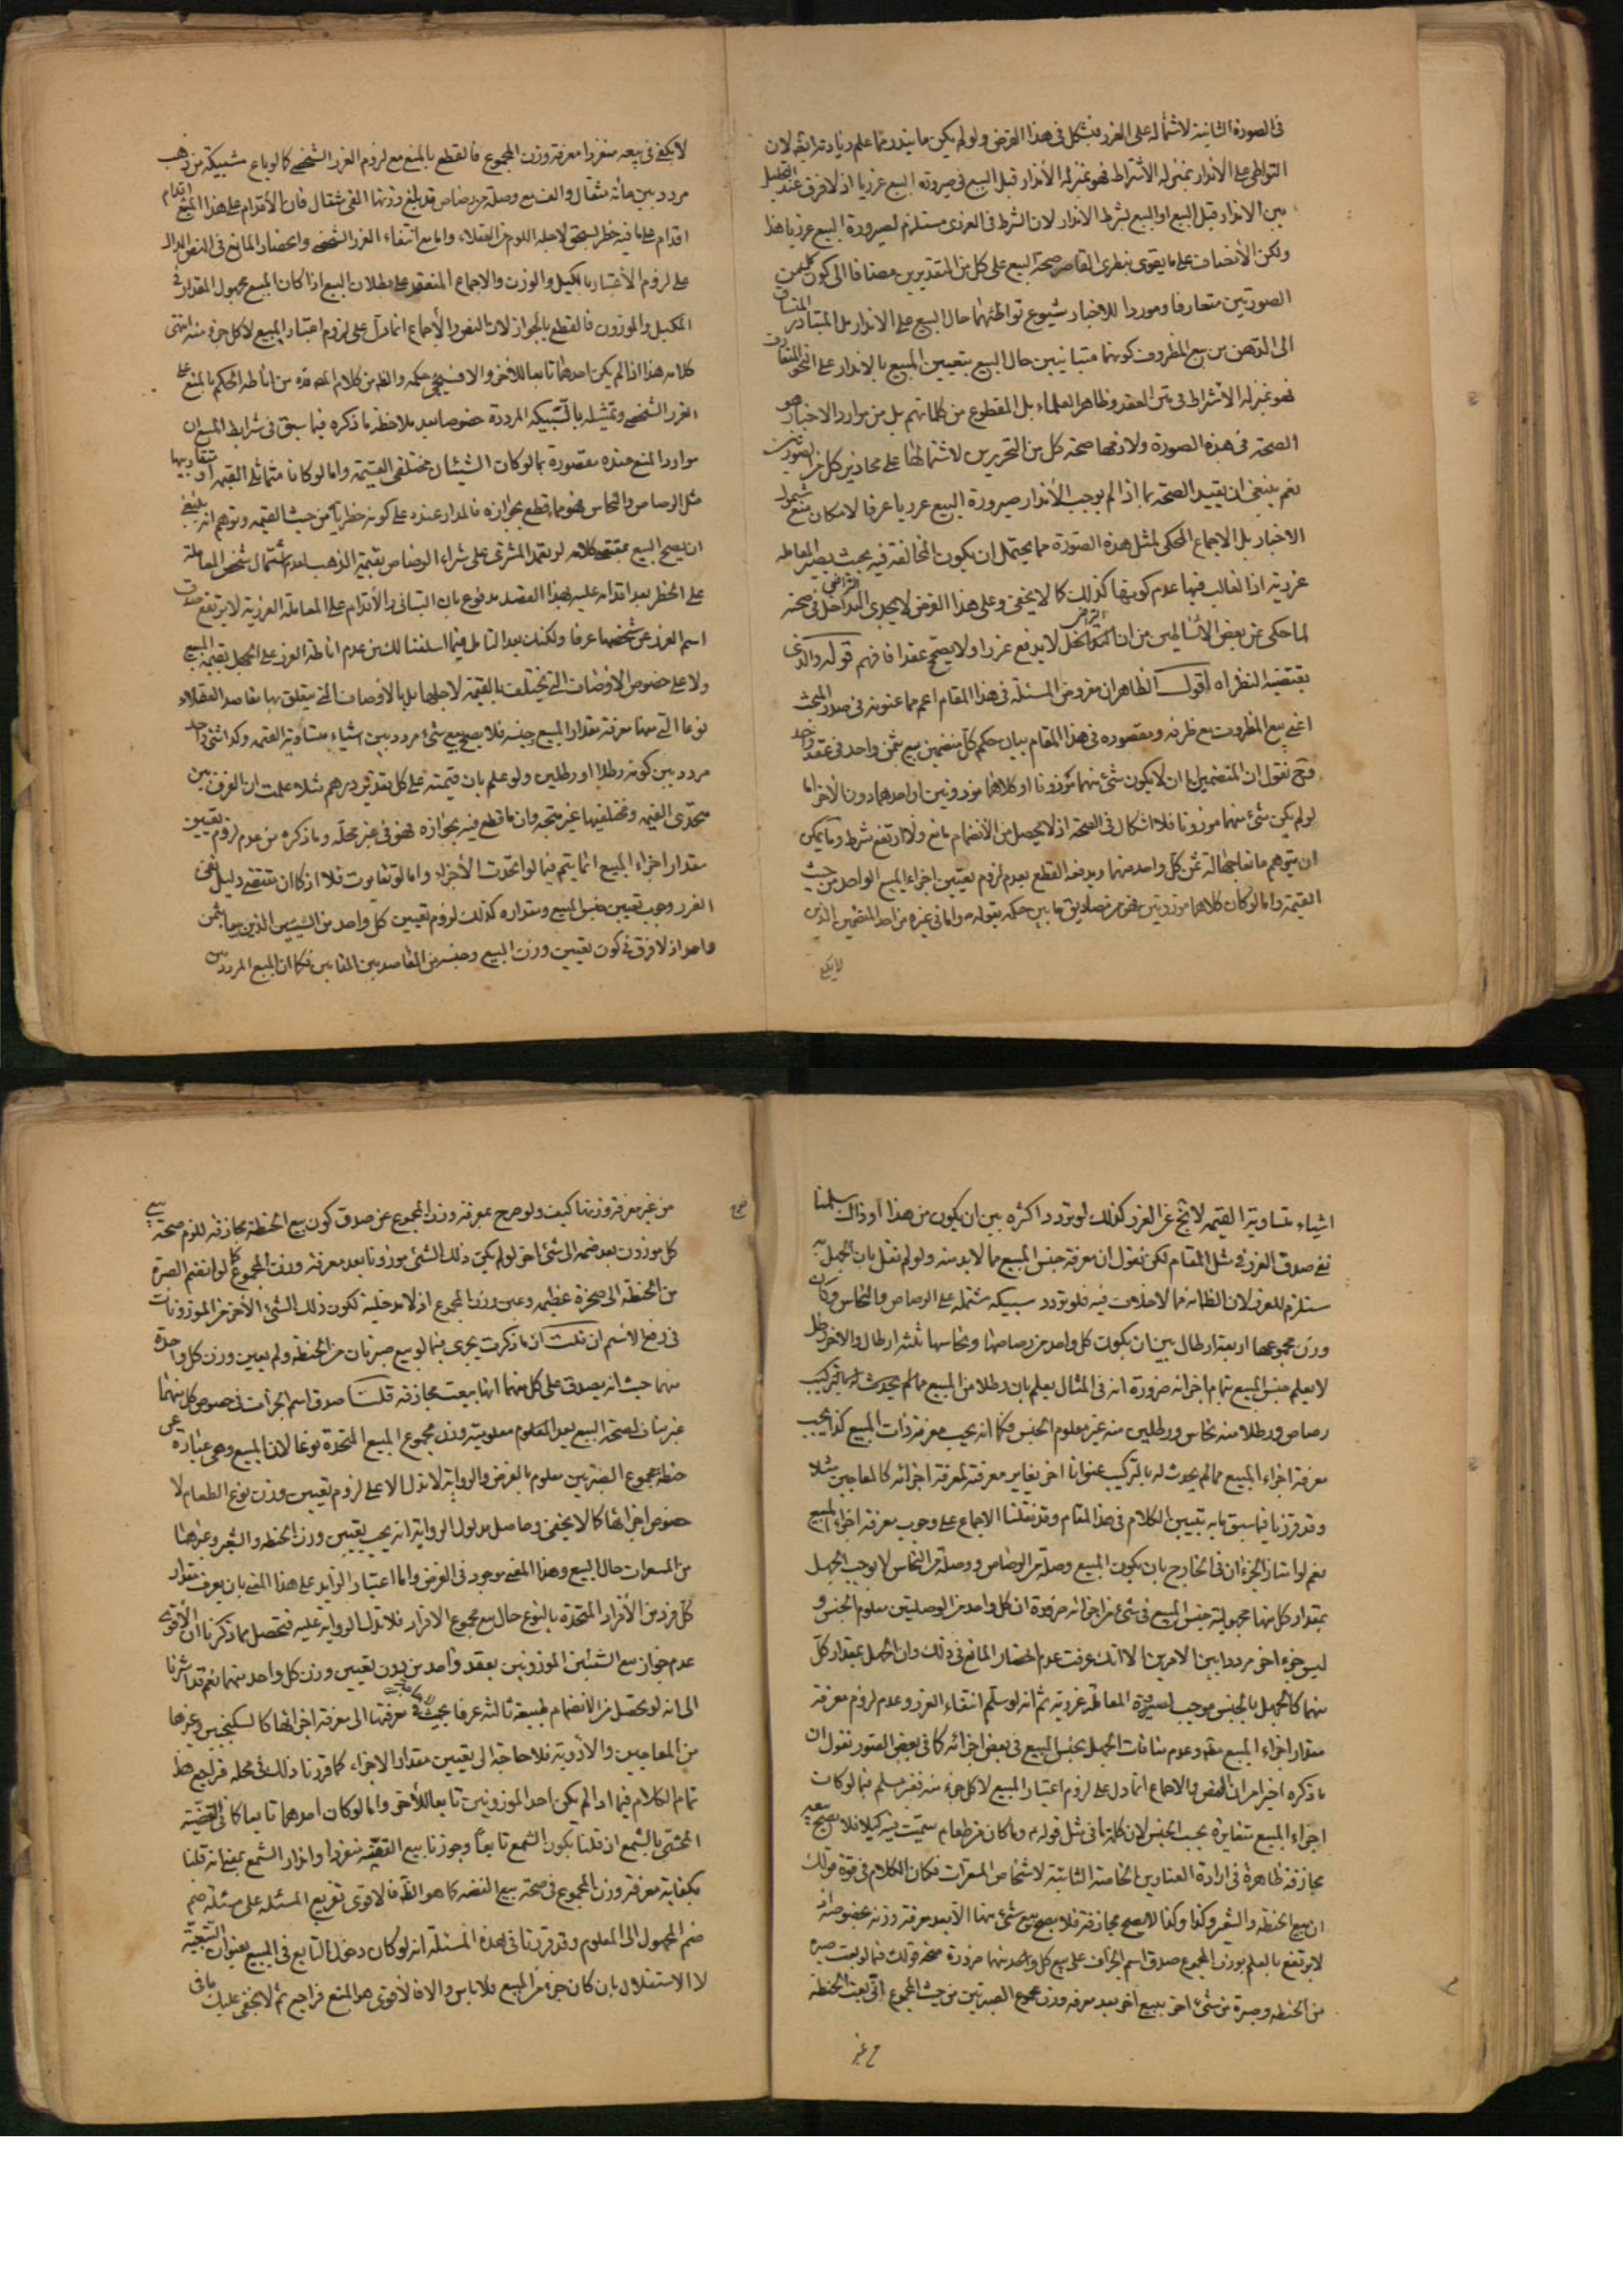 فى الصورة الثانية لاشتماله على الغرر مشكل فى هذا الفرض ولو لم يكن ما يندر مما علم زيادته رايقه لان
التواطى على الاندار بمنزلة الاشتراط فهو بمنزلة الأندار قبل البيع فى صيرورة البيع غرريا اذ لا فرق عند التحليل
بين الاندار قبل البيع او البيع بشرط الاندار لان الشرط فى الغررى مستلزم لصيرورة البيع غرريا هذا
ولكن الأنصاف على ما يقوى بنظرى القاصر صحة البيع على كل من التقديرين مضافا الى كون كل من
الصورتين متعارفا وموردا للاخبار شيوع تواطئهما حال البيع على الاندار بل المتبادر المنساق
الى الذهن من بيع المظروف كونهما متبانيين حال البيع بتعيين المبيع بالاندار على النحو المتعارف
فهو بمنزلة الأشتراط فى متن العقد وظاهر العلماء بل المقطوع من كلماتهم بل من موارد الاخبار هو
الصحة فى هذه الصورة ولازمها صحة كل من التحريرين لاشتمالها على محاذير كل من الصورتين
نعم ينبغى ان يقيد الصحة بما اذا لم يوجب الأندار صيرورة البيع غرريا عرفا لامكان منع شمول
الاخبار بل الاجماع المحكى لمثل هذه الصورة مما يحتمل ان يكون المخالفة فيه بحيث يصير المعاملة
غررية اذ الغالب فيها عدم كونها كذلك كما لا يخفى وعلى هذا الفرض لا يجدى التراضى فى صحته
لما حكى عن بعض الأساطين من ان التراضى لا يدفع غررا ولا يصحح عقدا فافهم قوله والذى
يقتضيه النظر اه اقول الظاهر ان مفروض المسئلة فى هذا المقام اعم مما عنونه فى صدر المبحث
اعنى بيع المظروف مع ظرفه ومقصوده فى هذا المقام بيان حكم كل منضمين بيع بثمن واحد فى عقد واحد
وح نقول ان المنضمين اما ان لا يكون شئ منهما موزونا او كلاهما موزونين او احدهما دون الأخر اما
لو لم يكن شئ منهما موزونا فلا اشكال فى الصحة اذ لا يحصل من الأنضمام مانع ولا ارتفع شرط وما يمكن
ان يتوهم مانعا جهالة ثمن كل واحد منهما ويدفعه القطع بعدم لزوم تعيين اجزاء المبيع الواحد من حيث
القيمة واما لو كان كلاهما موزونين فهو من مصاديق ما بين حكمه بقوله واما فى غيره من احد المنضمين الذين
لا يكفى
لا يكفى فى بيعه منفردا معرفة وزن المجموع فالقطع بالمنع مع لزوم الغرر الشخصى كما لو باع سبيكة من ذهب
مردد بين مائة مثقال والف مع وصلة من رصاص قد بلغ وزنها الفى مثقال فان الأقدام على هذا البيع اقدام
اقدام على ما فيه خطر يستحق لاجله اللوم من العقلاء واما مع انتفاء الغرر الشخصى وانحصار المانع فى النص الدال
على لزوم الأعتبار بالكيل والوزن والاجماع المنعقد على بطلان البيع اذا كان المبيع مجهول المقدار فى
المكيل والموزون فالقطع بالجواز لان النص والأجماع انما دل على لزوم اعتبار المبيع لا كل جزء منه انتهى
كلامه هذا اذا لم يكن احدهما تابعا للاخر والا فسيجئ حكمه والظ من كلام المص قده من اناطة الحكم بالمنع على
الغرر الشخصى وتمثيله بالسبيكة المرددة خصوصا بعد ملاحظة ما ذكره فيما سبق فى شرايط المبيع ان
موارد المنع عنده مقصورة بما لو كان الشيئان مختلفى القيمة واما لو كانا متماثلى القيمة او متقاربيها
مثل الرصاص والنحاس فهو مما قطع بجوازه فالمدار عنده على كونه خطريا من حيث القيمة وتوهم انه ينبغى
ان يصح البيع بمقتضى كلامه لو تعمد المشترى على شراء الرصاص بقيمة الذهب لعدم اشتمال شخص المعاملة
على الخطر بعد اقدامه عليه بهذا القصد مدفوع بان التبانى والأقدام على المعاملة الغررية لا يرتفع صدق
اسم الغرر عن شخصها عرفا ولكنك بعد التامل فيما اسلفنا لك من عدم اناطة الغرر على الجهل بقيمة المبيع
ولا على خصوص الاوصاف التى يختلف بالقيمة لاجلها بل بالأوصاف التى يتعلق بها مقاصد العقلاء
نوعا التى منها معرفة مقدار المبيع وجنسه فلا يصح بيع شئ مردد بين اشياء متساوية القيمة وكذا شئ واحد
مردد بين كونه رطلا او رطلين ولو علم بان قيمته على كل تقدير درهم مثلا علمت ان الفرق بين
متحدى القيمة ومختلفيها غير متجه وان ما قطع فيه بجوازه فهو فى غير محله وما ذكره من عدم لزوم تعيين
مقدار اجزاء المبيع انما يتم فيما لو اتحدت الأجزاء واما لو تفاوت فلا اذ كما ان مقتضى دليل نفى
الغرر وجوب تعيين جنس المبيع ومقداره كذلك لزوم تعيين كل واحد من الشيئين الذين بيعا بثمن
واحد اذ لا فرق فى كون تعيين وزن المبيع وجنسه من المقاصد بين المقامين فكما ان المبيع المردد بين
اشياء متساوية القيمة لا يخ عن الغرر كذلك لو تردد اكثره بين ان يكون من هذا او ذاك سلمنا
نفى صدق الغرر فى مثل المقام لكن نقول ان معرفة جنس المبيع مما لا بد منه ولو لم نقل بان الجهل به
مستلزم للغرر لان الظ انه مما لا خلاف فيه فلو تردد سبيكة مشتملة على الرصاص والنحاس وكان
وزن مجموعها اربعة ارطال بين ان يكون كل واحد من رصاصها ونحاسها ثلثة ارطال والاخر رطل
لا يعلم جنس المبيع بتمام اجزائه ضرورة انه فى المثال يعلم بان رطلا من المبيع مما لم يحدث له بالتركيب
رصاص ورطلا منه نحاس ورطلين منه غير معلوم الجنس فكما انه يجب معرفة ذات المبيع كذا يجب
معرفة اجزاء المبيع مما لم يحدث له بالتركيب عنوانا اخر يغاير معرفته لمعرفة اجزائه كالمعاجين مثلا
وقد قررنا فيما سبق ما به تبيين الكلام فى هذا المقام وقد نقلنا الاجماع على وجوب معرفة اجزاء المبيع
نعم لو امتاز الجزءان فى الخارج بان يكون المبيع وصلة من الرصاص ووصلة من النحاس لا يوجب الجهل
بمقدار كل منها مجهولية جنس المبيع فى شئ من اجزائه ضرورة ان كل واحد من الوصلتين معلوم الجنس و
ليس جزء اخر مرددا بين الامرين الا انك عرفت عدم انحصار المانع فى ذلك وان الجهل بمقدار كل
منهما كالجهل بالجنس موجب لصيرورة المعاملة غررية ثم انه لو سلم انتفاء الغرر وعدم لزوم معرفة
مقدار اجزاء المبيع مطلقا وعدم منافات الجهل بجنس المبيع فى بعض اجزائه كما فى بعض الصور نقول ان
ما ذكره اخيرا من ان النص والاجماع انما دل على لزوم اعتبار المبيع لا كل جزء منه فغير مسلم فيما لو كانت
اجزاء المبيع متغايرة بحسب الجنس لان كلمة ما فى مثل قوله ع وما كان من طعام سميت فيه كيلا فلا يصح بيعه
مجازفة ظاهرة فى ارادة العناوين الخاصة الثابتة لاشخاص المسعرات فكان الكلام فى قوة قولك
ان بيع الحنطة والشعير وكذا وكذا لا يصح مجازفة فلا يصح بيع شئ منها الا بعد معرفة وزنه بخصوصه اذ
لا يرتفع بالعلم بوزن المجموع صدق اسم الجزاف على بيع كل واحد منهما ضرورة صحة قولك فيما لو بعت صبرة
من الحنطة وصبرة من شئ اخر ببيع اخر بعد معرفة وزن مجموع الصبرتين من حيث المجموع انى بعت الحنطة
من غير
من غير معرفة وزنها كيف ولو خرج بمعرفة وزن المجموع عن صدق كون بيع الحنطة مجازفة للزم صحة بيع
كل موزون بعد ضمه الى شئ اخر لو لم يكن ذلك الشئ موزونا بعد معرفة وزن المجموع كما لو انضم الصبرة
من الحنطة الى صخرة عظيمة وعين وزن المجموع اذ لا مدخلية لكون ذلك الشئ الأخر من الموزونات
فى رفع الاسم ان قلت ان ما ذكرت يجرى فيما لو بيع صبرتان من الحنطة ولم يعين وزن كل واحدة
منهما حيث انه يصدق على كل منهما انها بيعت مجازفة قلت صدق اسم الجزاف فى خصوص كل منهما
غير مناف لصحة البيع بعد معلومية وزن مجموع المبيع المتحدة نوعا لان المبيع وهى عبارة عن
حنطة مجموع الصبرتين معلوم بالفرض والرواية لا تدل الا على لزوم تعيين وزن نوع الطعام لا
خصوص اجزائها كما لا يخفى وحاصل مدلول الرواية انه يجب تعيين وزن الحنطة والشعير وغيرهما
من المسعرات حال البيع وهذا المعنى موجود فى الفرض واما اعتبار الزايد على هذا المعنى بان يعرف مقدار
كل فرد من الأفراد المتحدة بالنوع حال بيع مجموع الافراد فلا تدل الرواية عليه فتحصل مما ذكرنا ان الأقوى
عدم جواز بيع الشيئين الموزونين بعقد واحد من دون تعيين وزن كل واحد منهما نعم قد اشرنا
الى انه لو تحصل من الانضمام طبيعة ثالثة عرفا بحيث لا يحتاج فى معرفتها الى معرفة اجزائها كالسكنجبين وغيرها
من المعاجين والأدوية فلا حاجة الى تعيين مقدار الاجزاء كما قررنا ذلك فى محله فراجع هذا
تمام الكلام فيما اذا لم يكن احد الموزونين تابعا للأخر واما لو كان احدهما تابعا كما فى الفضة
المحشى بالشمع ان قلنا بكون الشمع تابعا وجوزنا بيع الفضة منفردا واندار الشمع بمعنى انه قلنا
بكفاية معرفة وزن المجموع فى صحة بيع الفضة كما هو الظ فالأقوى تفريع المسئلة على مسئلة ضم
ضم المجهول الى المعلوم وقد قررنا فى هذه المسئلة انه لو كان دخول التابع فى المبيع بعنوان التبعية
لا الاستقلال بان كان جزء من المبيع فلا باس والا فالأقوى هو المنع فراجع ثم لا يخفى عليك ما فى